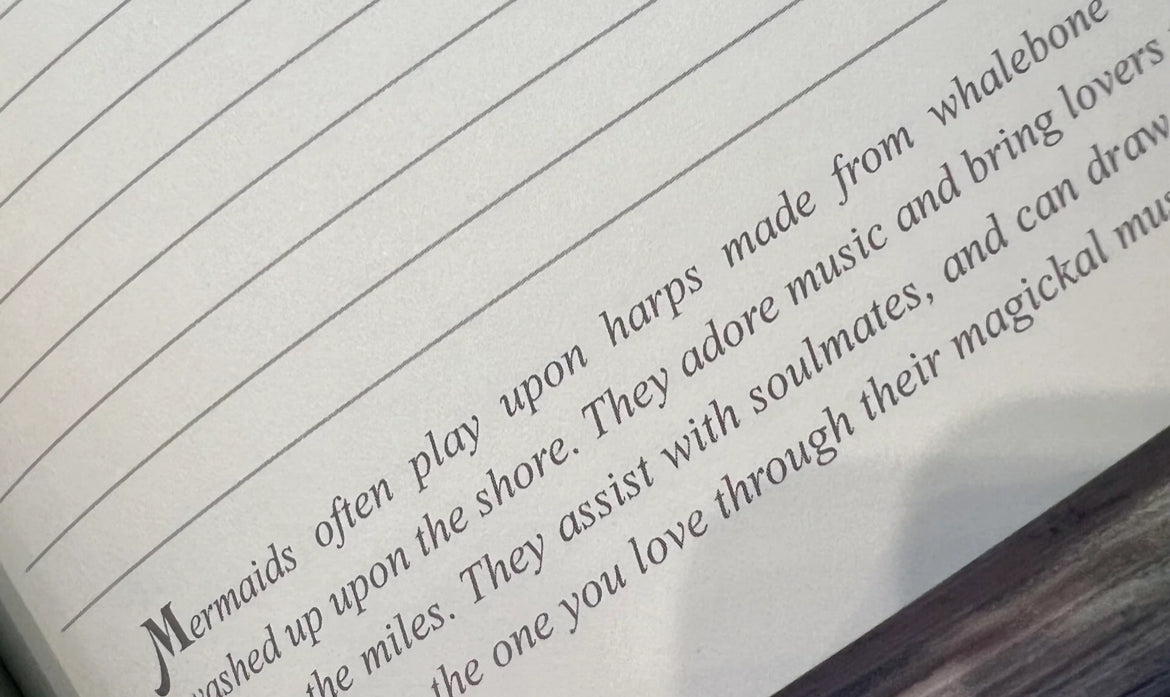 Mermaids often play upon harps made from whalebone
washed up upon the shore. They adore music and bring lovers
the miles. They assist with soulmates, and can draw
the one you love through their magickal